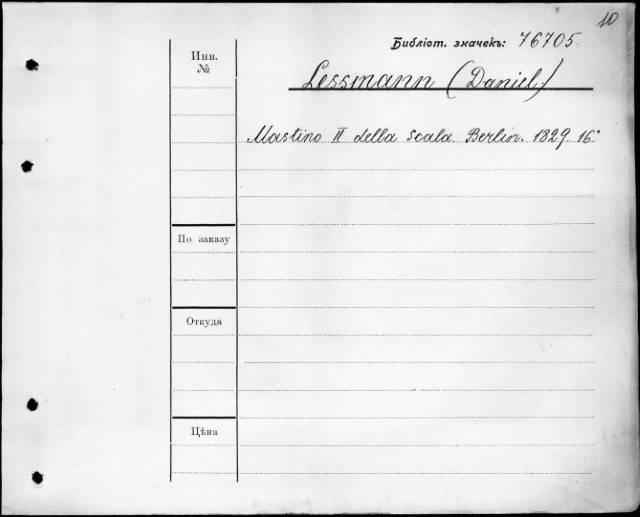 10
Библіот. значекъ: 76705.
Инв. №
Lessmann (Daniel)
Mastino II della Scala. Berlin. 1829. 16°
По заказу
Откуда
Цѣна